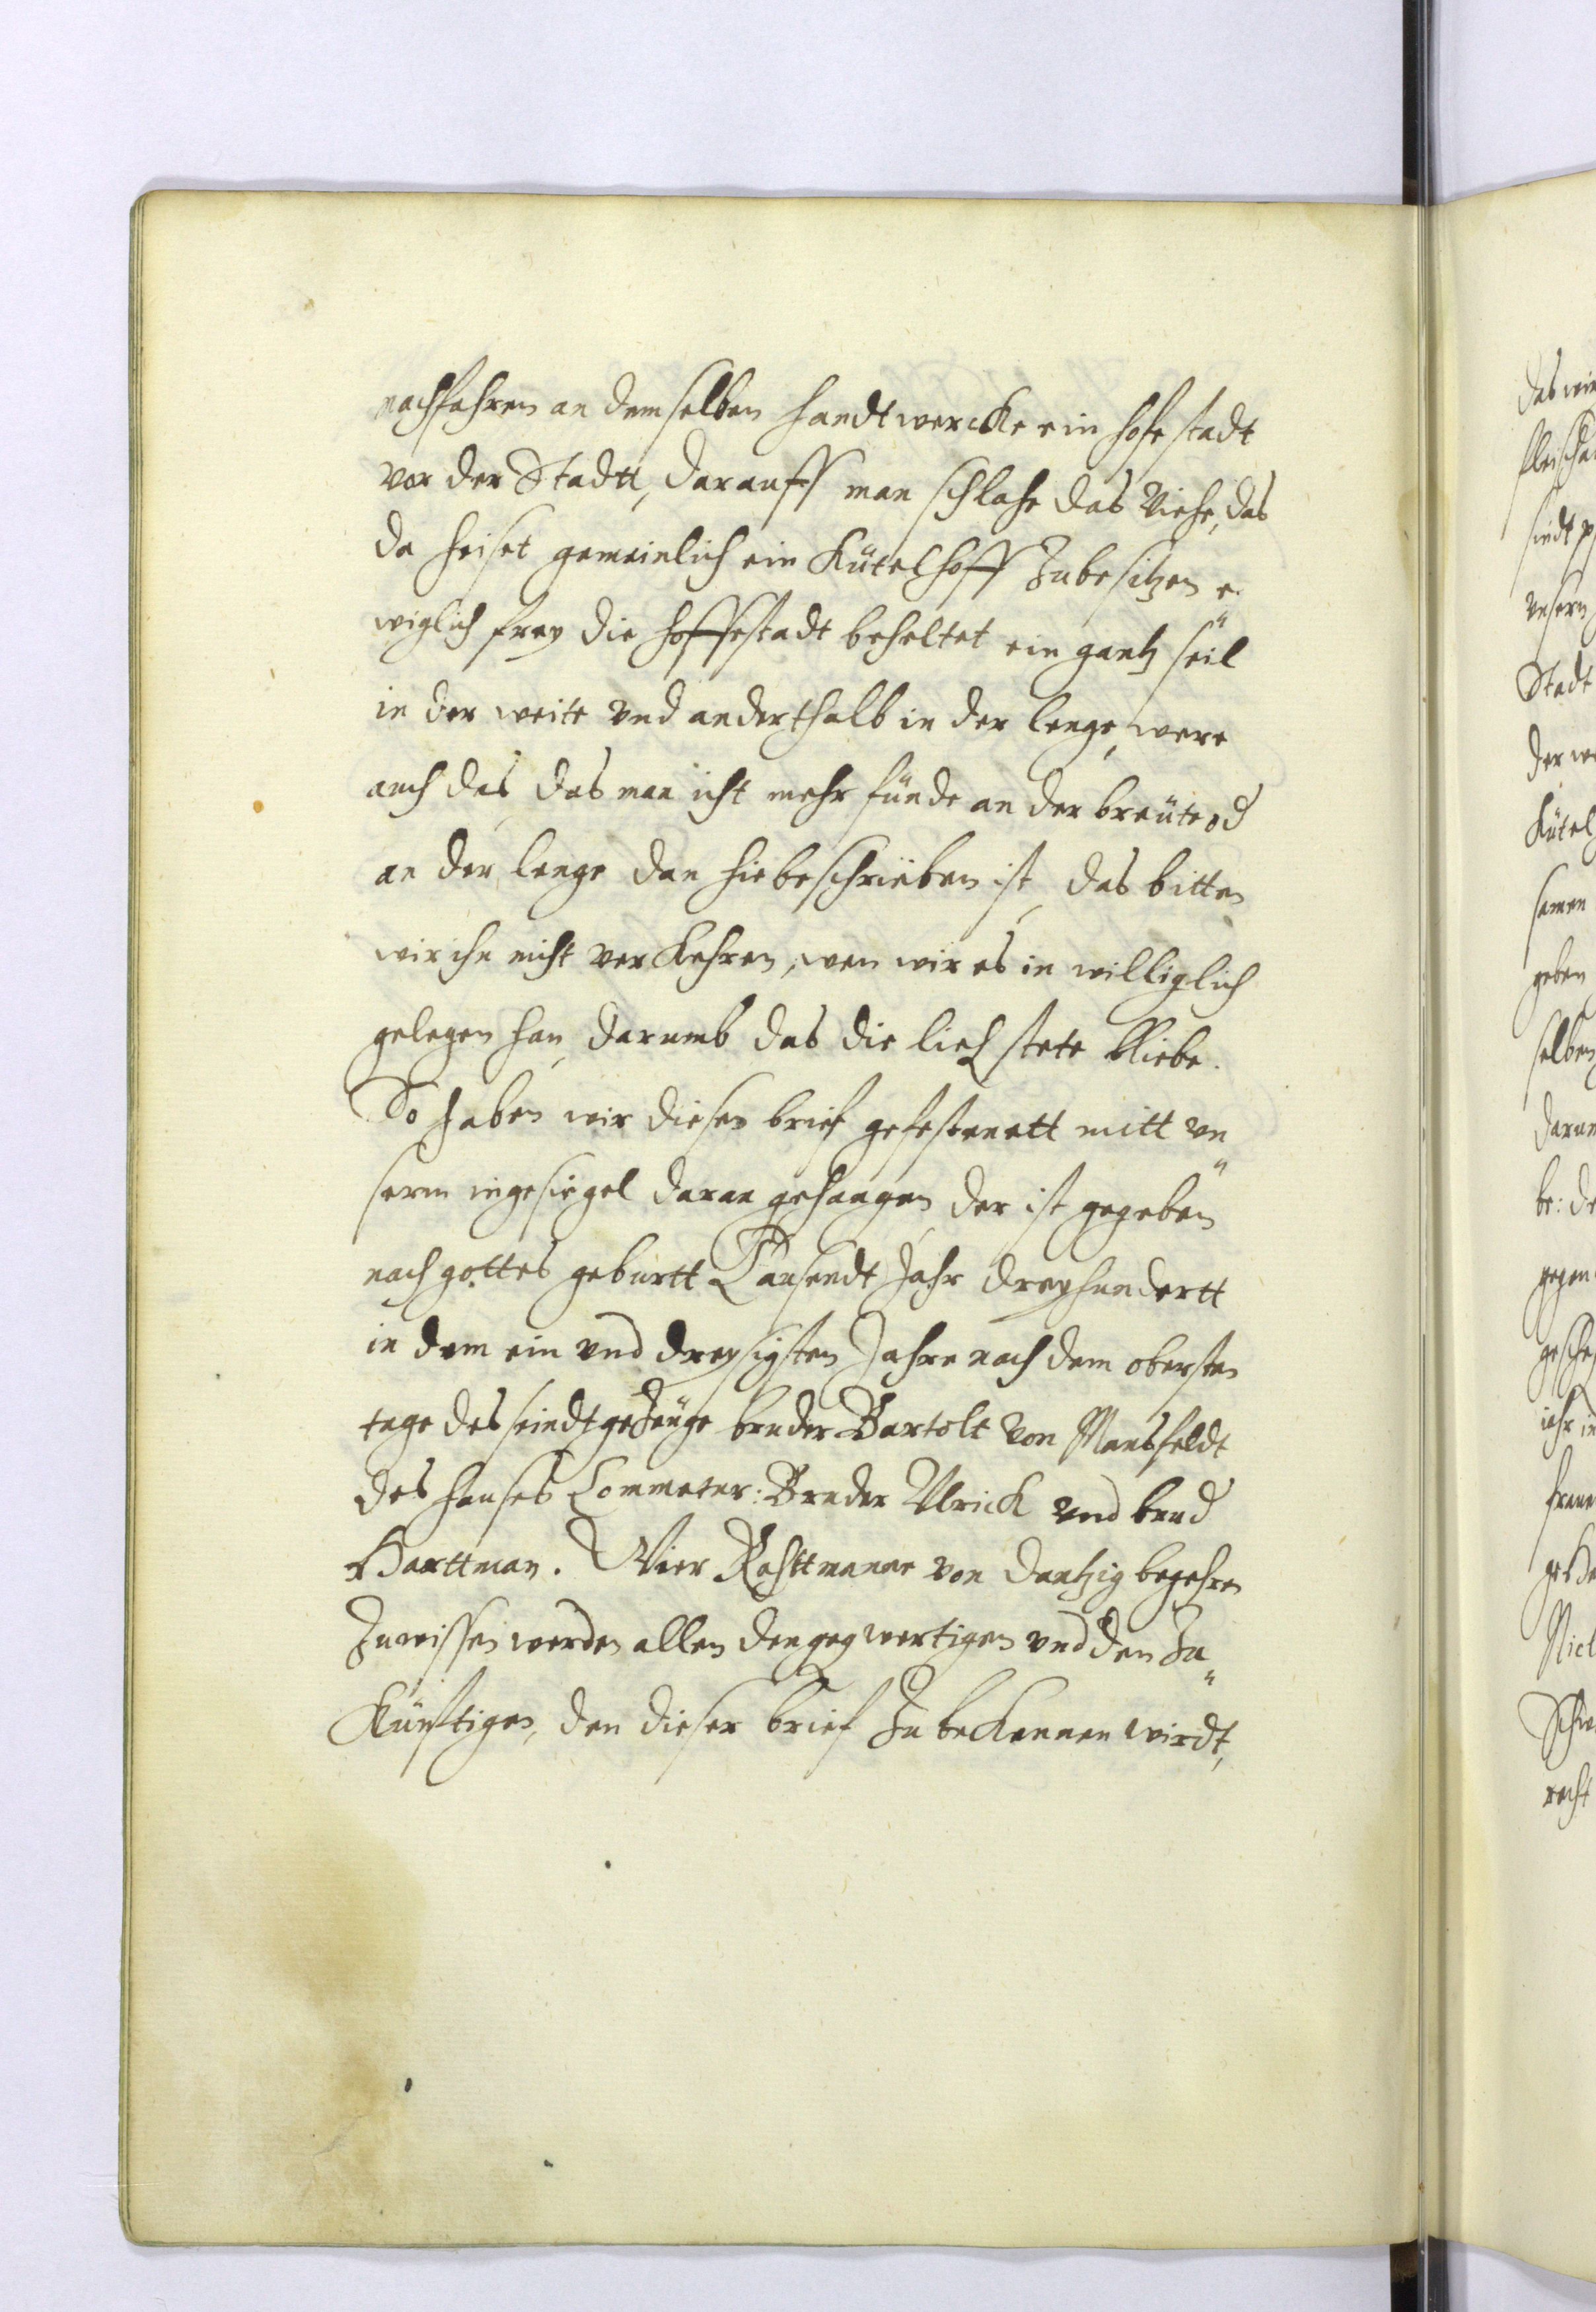 nachfahren an dem selben handtwercke ein hofe stadt
vor der Stadtt, darauff man schlahe das Viehe, das
da heiset gemeinlich ein Kütelhoff Zubesitzen e„
wiglich frey die hoffestadt beheltet ein gantz seil
in der weite vnd anderthalb in der lenge, were
auch das, das man icht mehr fünde an der breite od
an der lenge dan hie beschrieben ist, das bitten
wir ihn nicht verkehren, wen wir es in williglich
gelegen han, darumb das die lieh stete bliebe.
So haben wir diesen brief gefestenett mitt vn„
serm ingesiegel daran gehangen, der ist gegeben
nach gottes geburtt Tausendt Jahr dreyhundertt
in dem ein vnd dreysigsten Jahre nach dem obersten
tage des seindt geZeüge bruder Bartolt von Mansfeldt
des hauses Commetur: Bruder Vlrick vnd brud
Harttman. Wier Rahttmanne von Dantzig begehren
Zuwissen werden allen den gegwertigen vnd den Zu„
Künftigen, den dieser brief Zu bekennen wirdt,
das wir
fleischa
sindt
vnsern
Stadt
der we
Kütel
samen
geben
selben
darum
be: de
gegen
gesche
iahr in
Nicl
Schw
recht